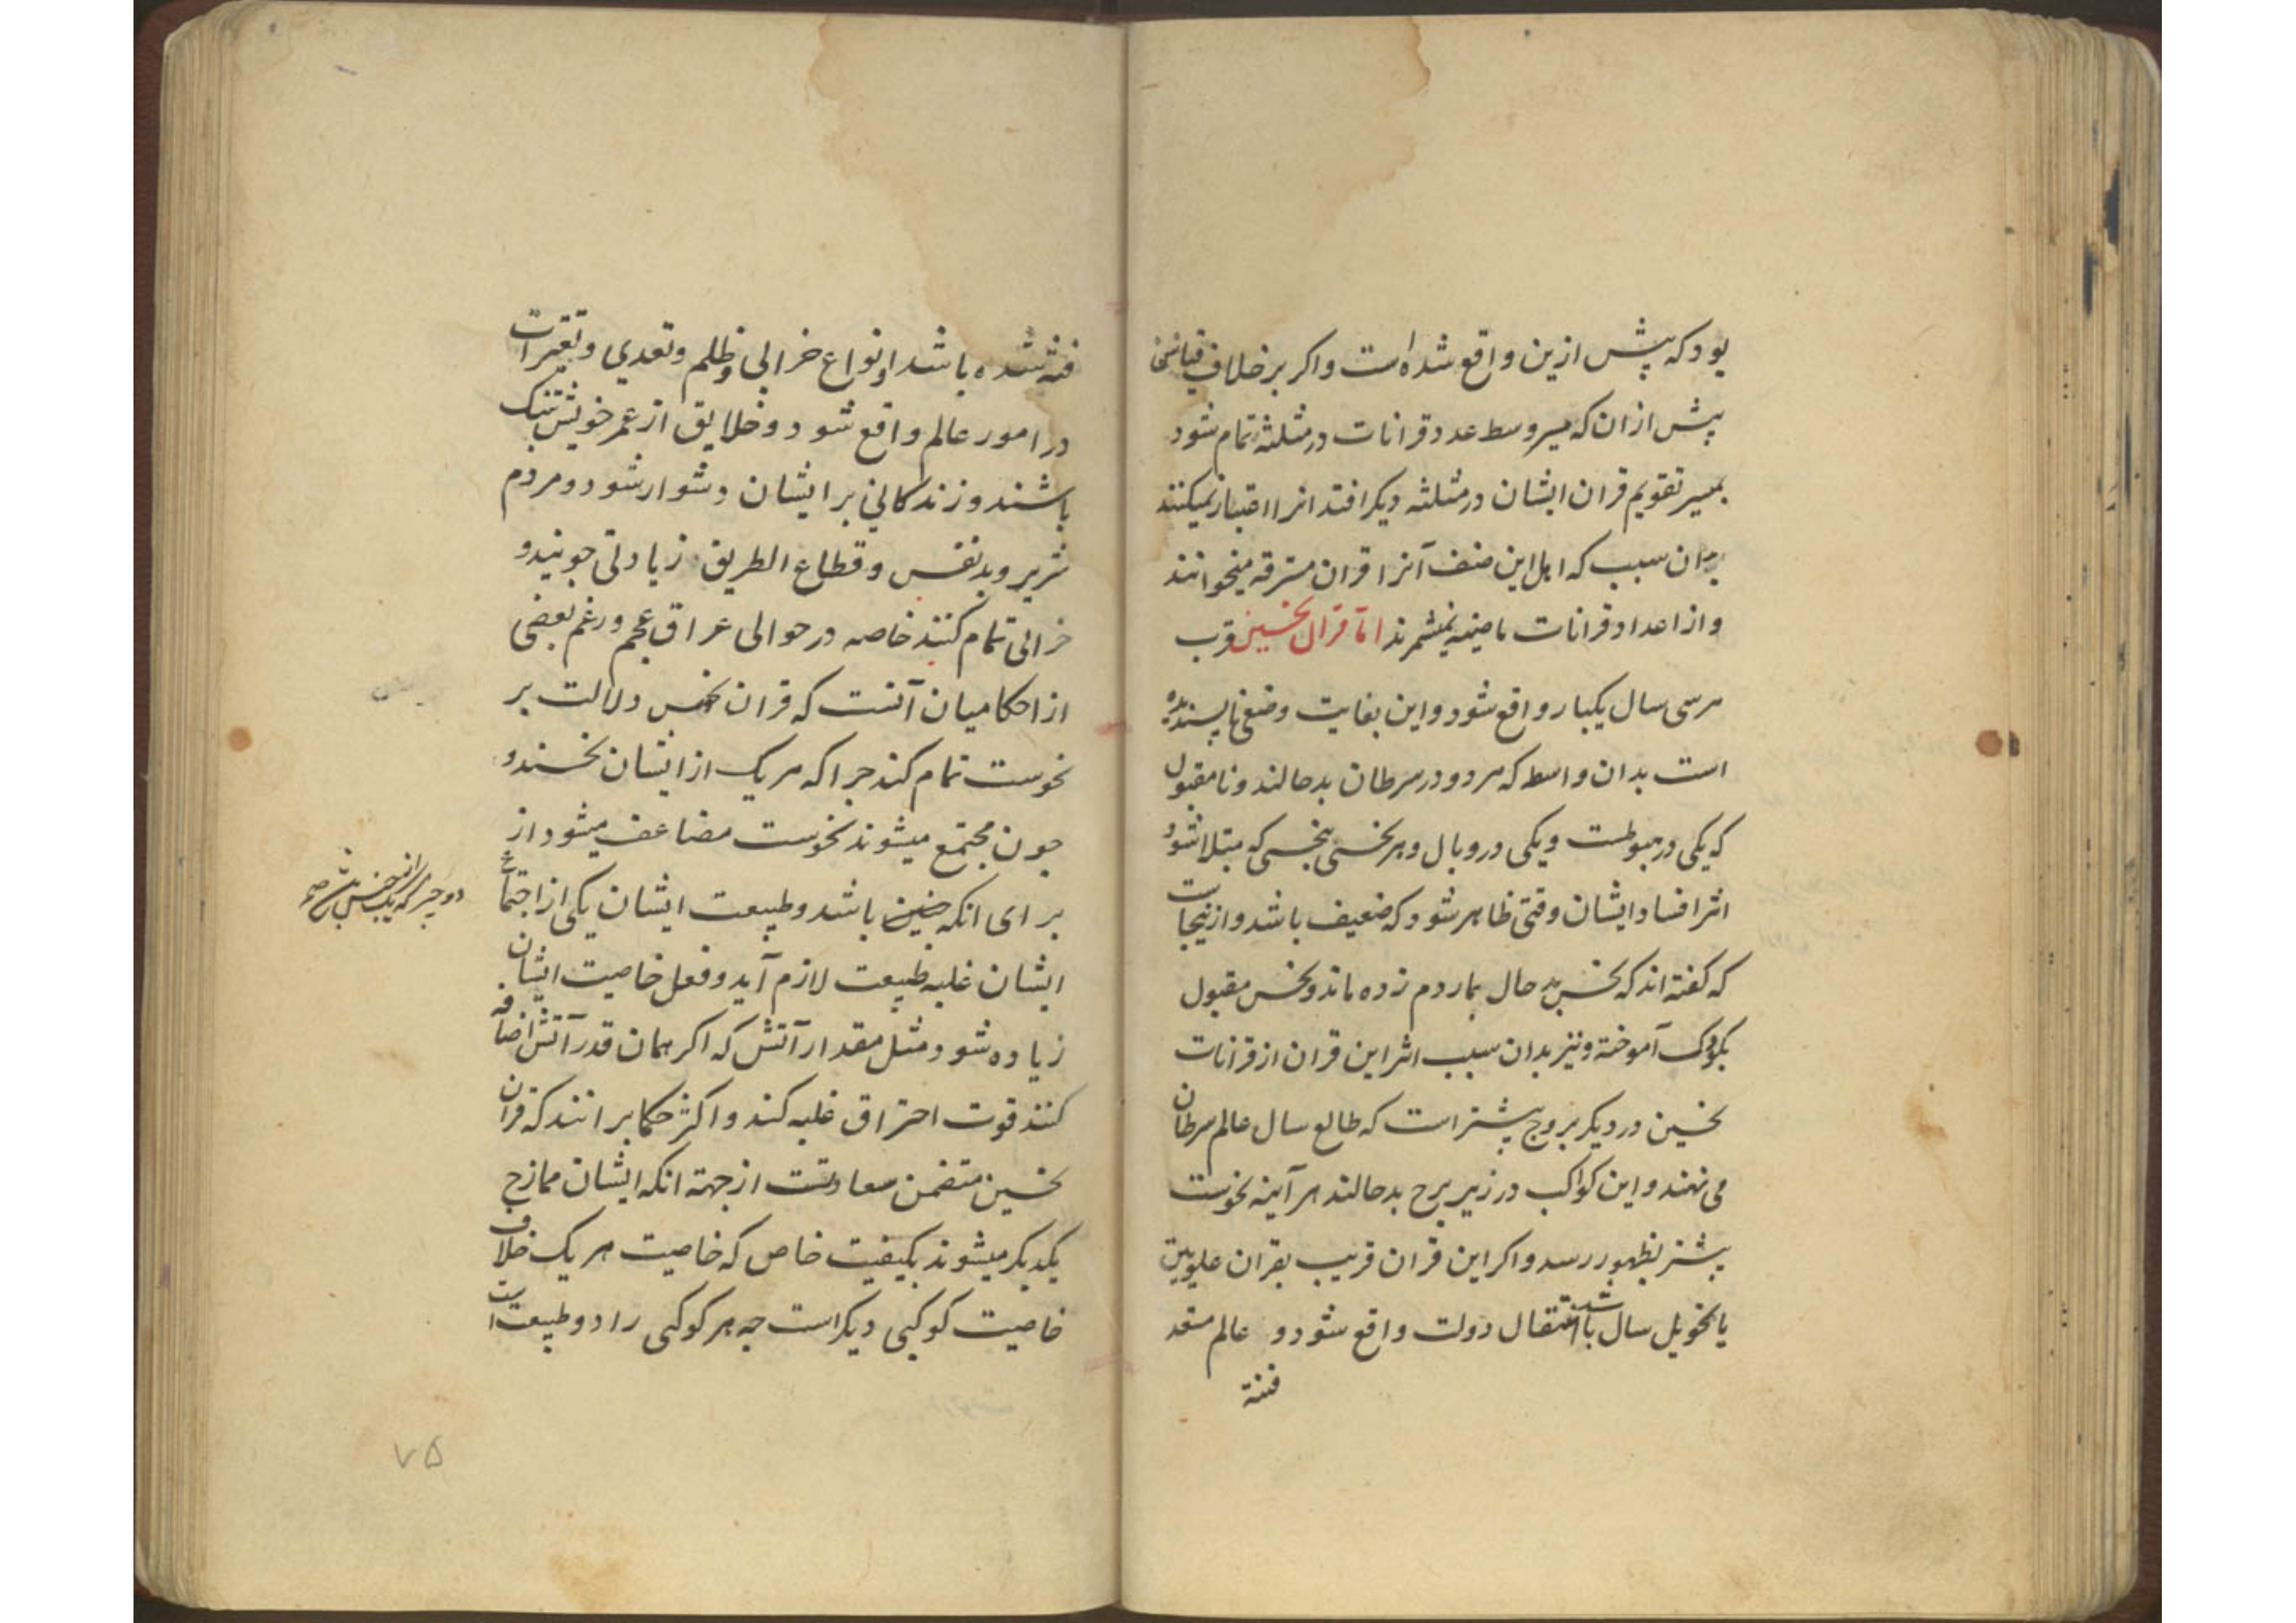 بود که پیش ازین واقع شده است واکر بر خلاف قیاسی
پیش از ان که میر وسط عدد قرانات در مثلثه تمام شود
بمسیر تقویم قران ایشان در مثلثه دیکر افتد انرا اعتبار نمیکنند
بدان سبب که اهل این صنف آنرا قران مسترقه میخوانند
و از اعداد قرانات ماضیه نمیشمرند اما قران نحسین قرب
هر سی سال یکبار واقع شود و این بغایت وضعی ناپسندیده
است بدان واسطه که هر دو در سرطان بدحالند و نامقبول
که یکی در هبوطست و یکی در وبال و هر نحسی بنحسی که مبتلا شود
اثر افساد ایشان وقتی ظاهر شود که ضعیف باشد و ازینجاست
که کفته اند که نحس بد حال بمار دم زده ماند و نحس مقبول
بکودک آموخته و نیز بدان سبب اثر این قران از قرانات
نحسین در دیکر بروج بیشتر است که طالع سال عالم سرطان
می نهند و این کواکب در زیر برج بدحالند هر آینه نحوست
بیشتر بظهور رسد و اکر این قران قریب بقران علویین
یا تحویل سال باشد انتقال دولت واقع شود و عالم متعد
فتنة
فتنه شده باشد و انواع خرابی و ظلم و تعدی و تغیرات
در امور عالم واقع شود و خلایق از عمر خویش تنک
باشند و زندکانی بر ایشان دشوار شود و مردم
شریر و بدنفس و قطاع الطریق زیادتی جویند و
خرابی تمام کنند خاصه در حوالی عراق عجم و زعم بعضی
از احکامیان آنست که قران نحس دلالت بر
نحوست تمام کند جرا که هر یک از ایشان نحسند و
جون مجتمع میشوند نحوست مضاعف میشود از
برای انکه جنین باشد و طبیعت ایشان یکی از اجتماع
دو چیز که از یک جنس باشد
ایشان غلبه طبیعت لازم آید و فعل خاصیت ایشان
زیاده شود مثل مقدار آتش که اکر همان قدر آتش اضافه
کنند قوت احتراق غلبه کند و اکثر حکما برانند که قران
نحسین متضمن سعادتست از جهة انکه ایشان ممازج
یکدیکر میشوند بکیفیت خاص که خاصیت هر یک خلاف
خاصیت کوکبی دیکر است جه هر کوکبی را دو طبیعت است
۷۵